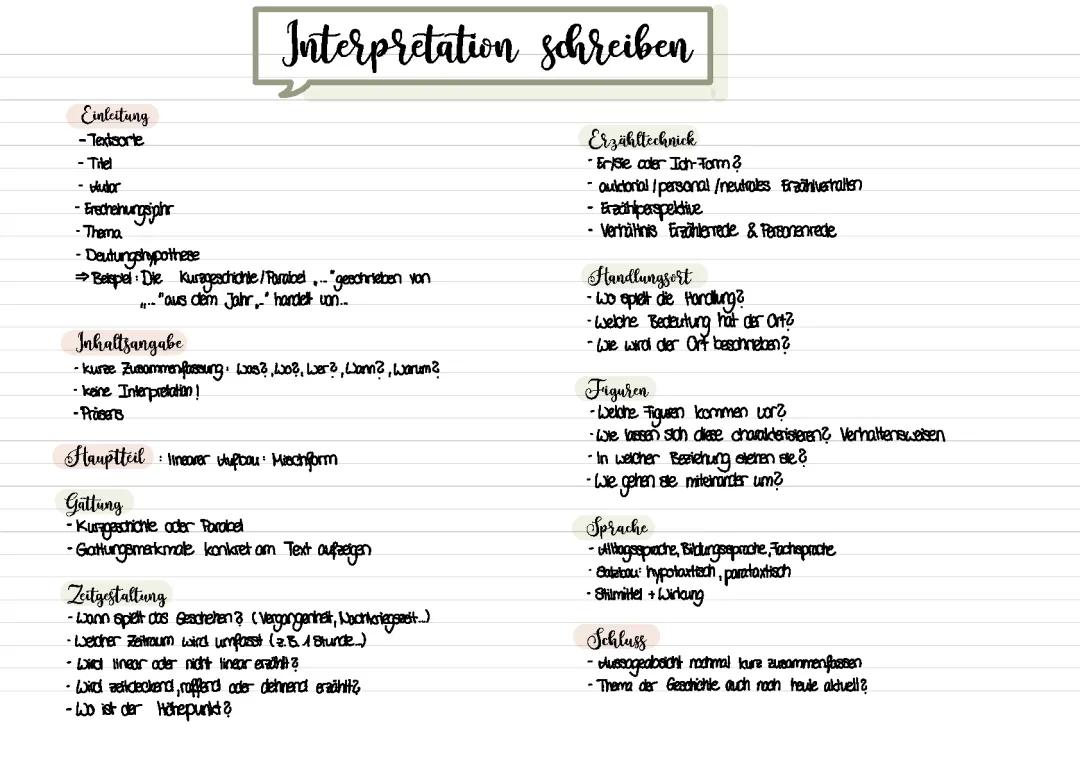 Interpretation schreiben
Einleitung
- Textsorte
- Titel
- Autor
- Erscheinungsjahr
- Thema
- Deutungshypothese
⇒ Beispiel: Die Kurzgeschichte/Parabel „..." geschrieben von
„..." aus dem Jahr „..." handelt von...
Inhaltsangabe
- kurze Zusammenfassung: Was?, Wo?, Wer?, Wann?, Warum?
- keine Interpretation!
- Präsens
Hauptteil: linearer Aufbau: Mischform
Gattung
- Kurzgeschichte oder Parabel
- Gattungsmerkmale konkret am Text aufzeigen
Zeitgestaltung
- Wann spielt das Geschehen? (Vergangenheit, Nachkriegszeit...)
- Welcher Zeitraum wird umfasst (z.B. 1 Stunde...)
- Wird linear oder nicht linear erzählt?
- Wird zeitdeckend, raffend oder dehnend erzählt?
- Wo ist der Höhepunkt?
Erzähltechnick
- Er/Sie oder Ich-Form?
- auktorial/personal/neutrales Erzählverhalten
- Erzählperspektive
- Verhältnis Erzählerrede & Personenrede
Handlungsort
- Wo spielt die Handlung?
- Welche Bedeutung hat der Ort?
- Wie wird der Ort beschrieben?
Figuren
- Welche Figuren kommen vor?
- Wie lassen sich diese charakterisieren? Verhaltensweisen
- In welcher Beziehung stehen sie?
- Wie gehen sie miteinander um?
Sprache
- Alltagssprache, Bildungssprache, Fachsprache
- Satzbau: hypotaxtisch, parataxtisch
- Stilmittel + Wirkung
Schluss
- Aussageabsicht nochmal kurz zusammenfassen
- Thema der Geschichte auch noch heute aktuell?